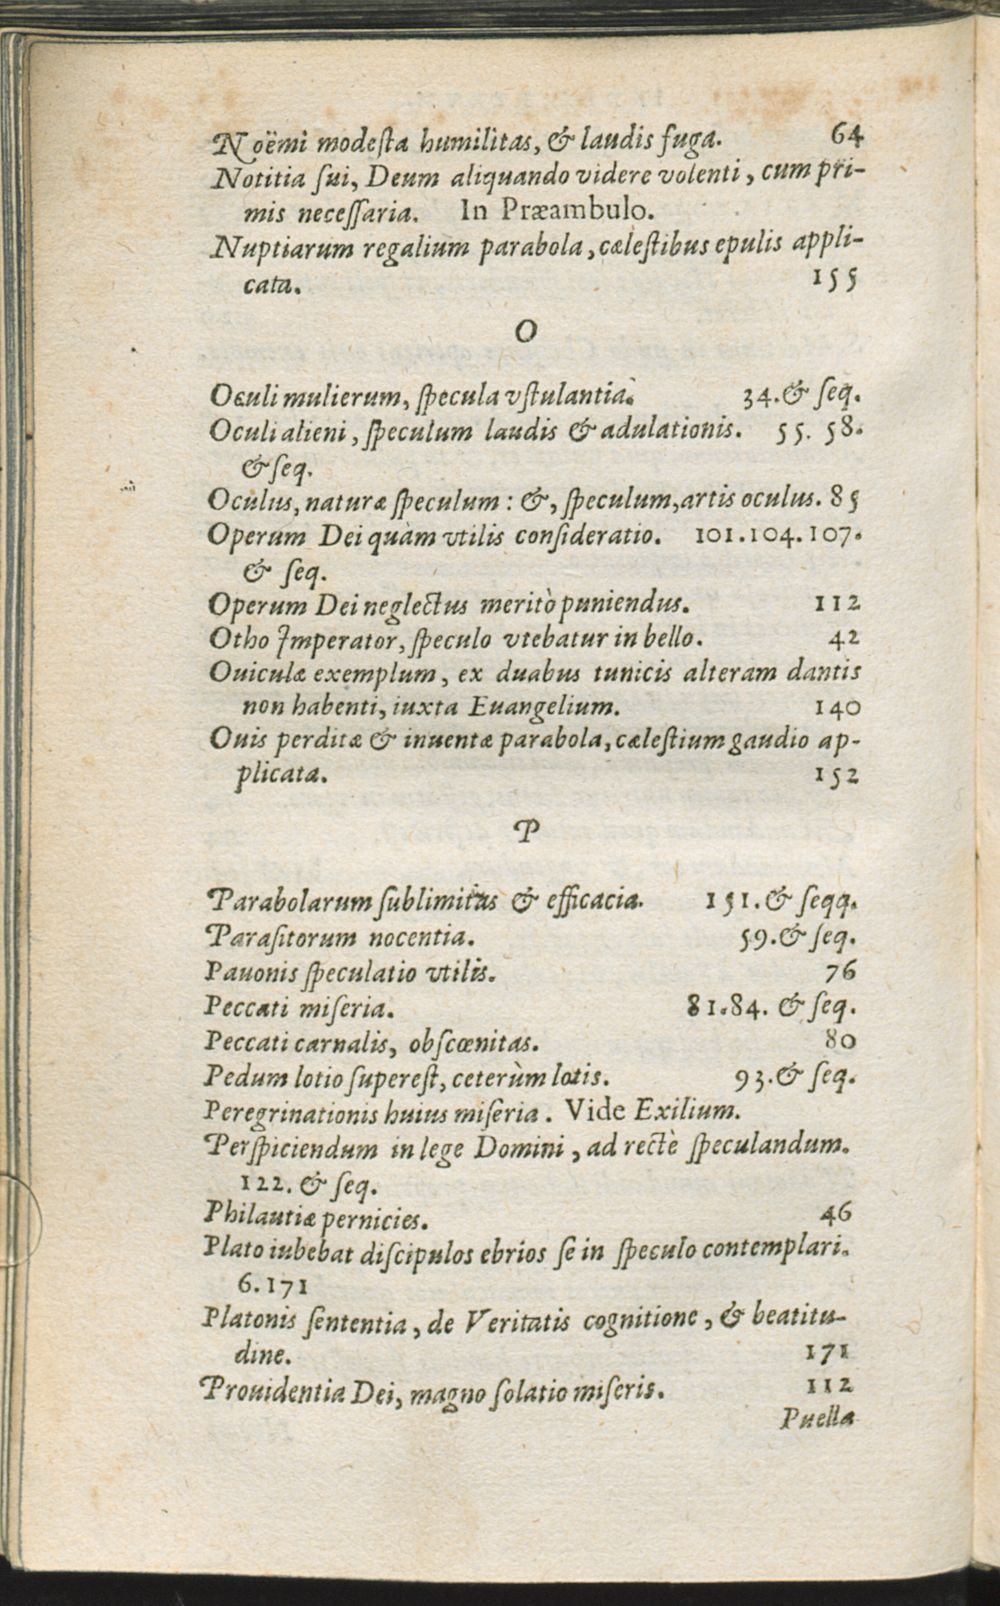 Noëmi modeſta humilitas, & laudis fuga. 64
Notitia ſui, Deum aliquando videre volenti, cum pri-
mis neceſſaria. In Præambulo.
Nuptiarum regalium parabola, cæleſtibus epulis appli-
cata. 155
O
Oculi mulierum, ſpecula vſtulantia. 34. & ſeq.
Oculi alieni, ſpeculum laudis & adulationis. 55. 58.
& ſeq.
Oculus, naturæ ſpeculum: &, ſpeculum, artis oculus. 85
Operum Dei quàm vtilis conſideratio. 101. 104. 107.
& ſeq.
Operum Dei neglectus meritò puniendus. 112
Otho Imperator, ſpeculo vtebatur in bello. 42
Ouiculæ exemplum, ex duabus tunicis alteram dantis
non habenti, iuxta Euangelium. 140
Ouis perditæ & inuentæ parabola, cæleſtium gaudio ap-
plicata. 152
P
Parabolarum ſublimitas & efficacia. 151. & ſeqq.
Paraſitorum nocentia. 59. & ſeq.
Pauonis ſpeculatio vtilis. 76
Peccati miſeria. 81. 84. & ſeq.
Peccati carnalis, obſcœnitas. 80
Pedum lotio ſupereſt, ceterùm lotis. 93. & ſeq.
Peregrinationis huius miſeria. Vide Exilium.
Perſpiciendum in lege Domini, ad rectè ſpeculandum.
122. & ſeq.
Philautiæ pernicies. 46
Plato iubebat diſcipulos ebrios ſe in ſpeculo contemplari.
6. 171
Platonis ſententia, de Veritatis cognitione, & beatitu-
dine. 171
Prouidentia Dei, magno ſolatio miſeris. 112
Puella